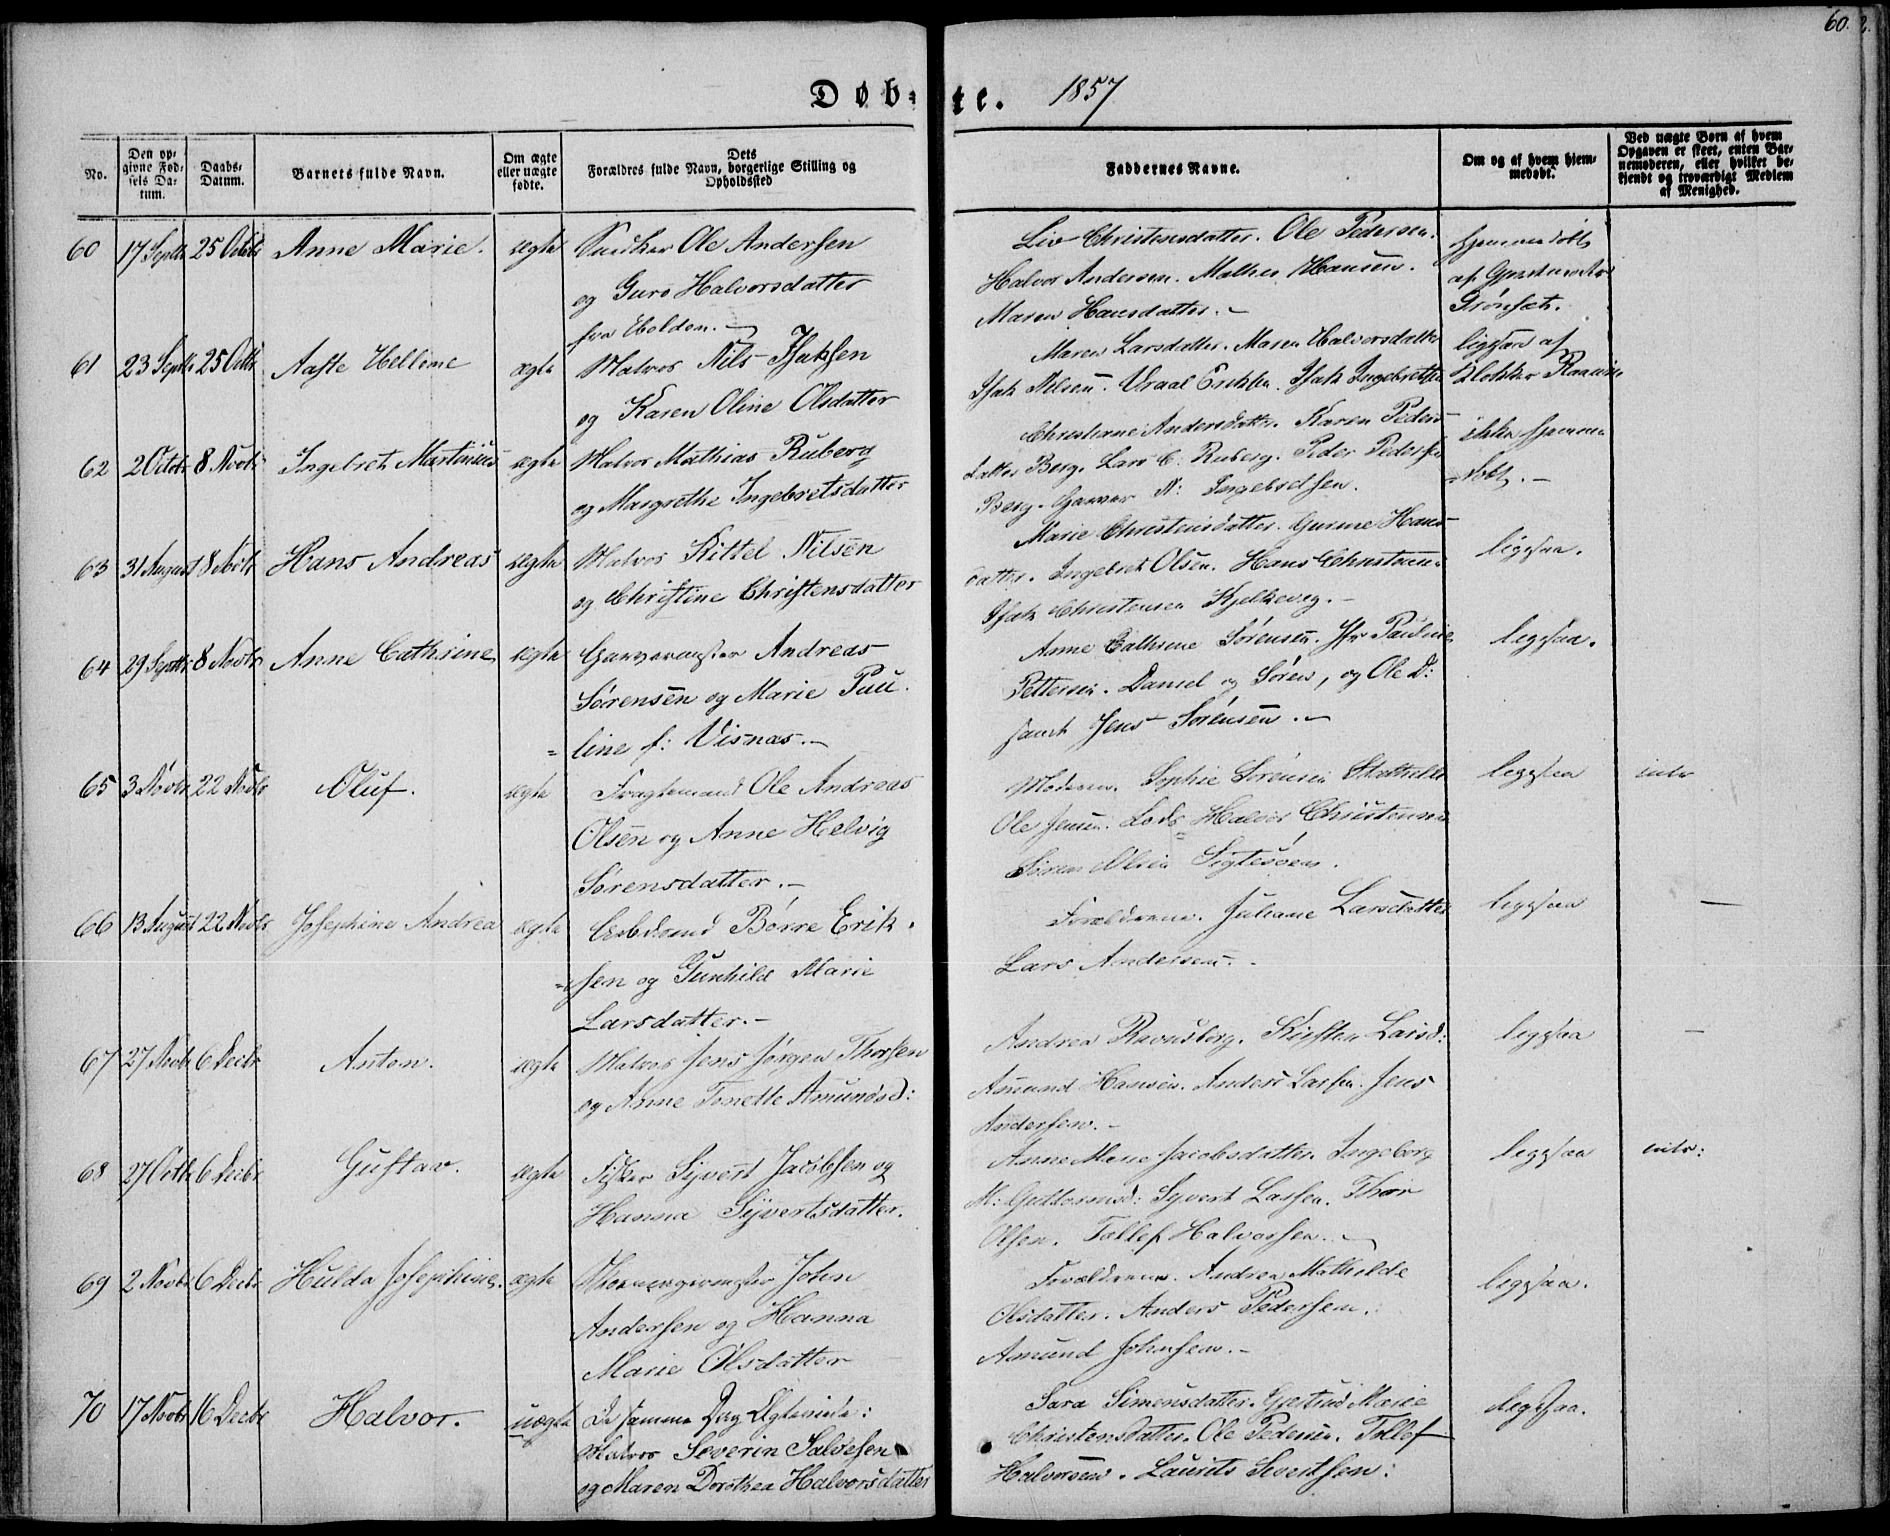 60.
Døb= te. 1857
No. | Den op= givne Fød= sels Da= tum. | Daabs= Datum. | Barnets fulde Navn. | Om ægte eller uægte fødte. | Dets Forældres fulde Navn, borgerlige Stilling og Opholdssted | Faddernes Navne. | Om og af hvem hjem= medøbt. | Ved uægte Børn af hvem Opgaven er skeet, enten Bar= nemoderen, eller hvilket be= kjendt og troværdigt Medlem af Menighed.
60 17 Septbr 25 Octobr Anne Marie. ægte Snedker Ole Andersen
og Guro Halvorsdatter
fra
Liv Christensdatter. Ole Pedersen.
Halvor Andersen. Mathis Hansen.
Maren Hansdatter.
hjemmedøbt
af
Grønsæt.
61 23 Septbr 25 Octbr Aaste Helline ægte Matros Nils Isaksen
og Karen Oline Olsdatter
Maren Larsdatter. Maren Halvorsdatter
Isak Nilsen. Vraal Eriksen. Isak Ingebretsen
ligesaa af
Klokker
62 2 Octobr 8 Novbr Ingebret Martinius ægte Matros Mathias Ruberg
og Margrethe Ingebretsdatter
Christiane Andersdatter. Karen Peders=
datter Berg. Lars C. Ruberg. Peder Pedersen
Berg. Garver N: Ingebretsen.
ikke hjemme
døbt.
63 31 August 8 Novbr Hans Andreas ægte Matros Kittel Nilsen
og Christine Christensdatter
Marie Christensdatter. Gurine Hans=
datter. Ingebret Olsen. Hans Christensen
Isak Christensen
ligesaa.
64 29 Septbr 8 Novbr Anne Cathrine ægte Garvermester Andreas
Sørensen og Marie Pau=
=line f: Visnæs.
Anne Cathrine Sørensen. Jfr Pauline
Pettersen. Daniel og Søren, og Ole D:
samt Jens Sørensen.
ligesaa.
65 3 Novbr 22 Novbr Oluf. ægte Fragtemand Ole Andreas
Olsen og Anne Helvig
Sørensdatter.
Moderen. Sophie Sørensen
Ole Jensen. Lods Halvor Christensen
Søren Olsen
ligesaa
intr
66 13 August 22 Novbr Josephine Andrea ægte Arbdsmd Børre Erik=
=sen og Gunhild Marie
Larsdatter.
Forældrene. Juliane Larsdatter
Lars Andersen.
ligesaa
—
67 27 Novbr 6 Decbr Anton. ægte Matros Jens Jørgen Thorsen
og Anne Tonette Amundsd:
Andrea Ravnsborg. Kirsten Larsd:
Amund Hansen. Anders Larsen. Jens
Andersen.
ligesaa
—
68 27 Octbr 6 Decbr Gustav. ægte Fisker Sijvert Jacobsen og
Hanna Sijvertsdatter.
Anne Marie Jacobsdatter. Ingeborg
M: Guttormsd: Syvert Larsen. Thor
Olsen. Tollef Halvorsen.
ligesaa
intr:
69 2 Novbr 6 Decbr Hulda Josephine. ægte John
Andersen og Hanna
Marie Olsdatter
Forældrene. Andrea Mathilde
Olsdatter. Anders Pedersen.
Amund Johnsen.
ligesaa.
70 17 Novbr 16 Decbr Halvor. uægte De samme Dag Ægteviede:
Matros Severin Salvesen
og Maren Dorothea Halvorsdatter
Sara Simensdatter. Gjertrud Marie
Christensdatter. Ole Pedersen. Tollef
Halvorsen. Laurits Sivertsen.
ligesaa.